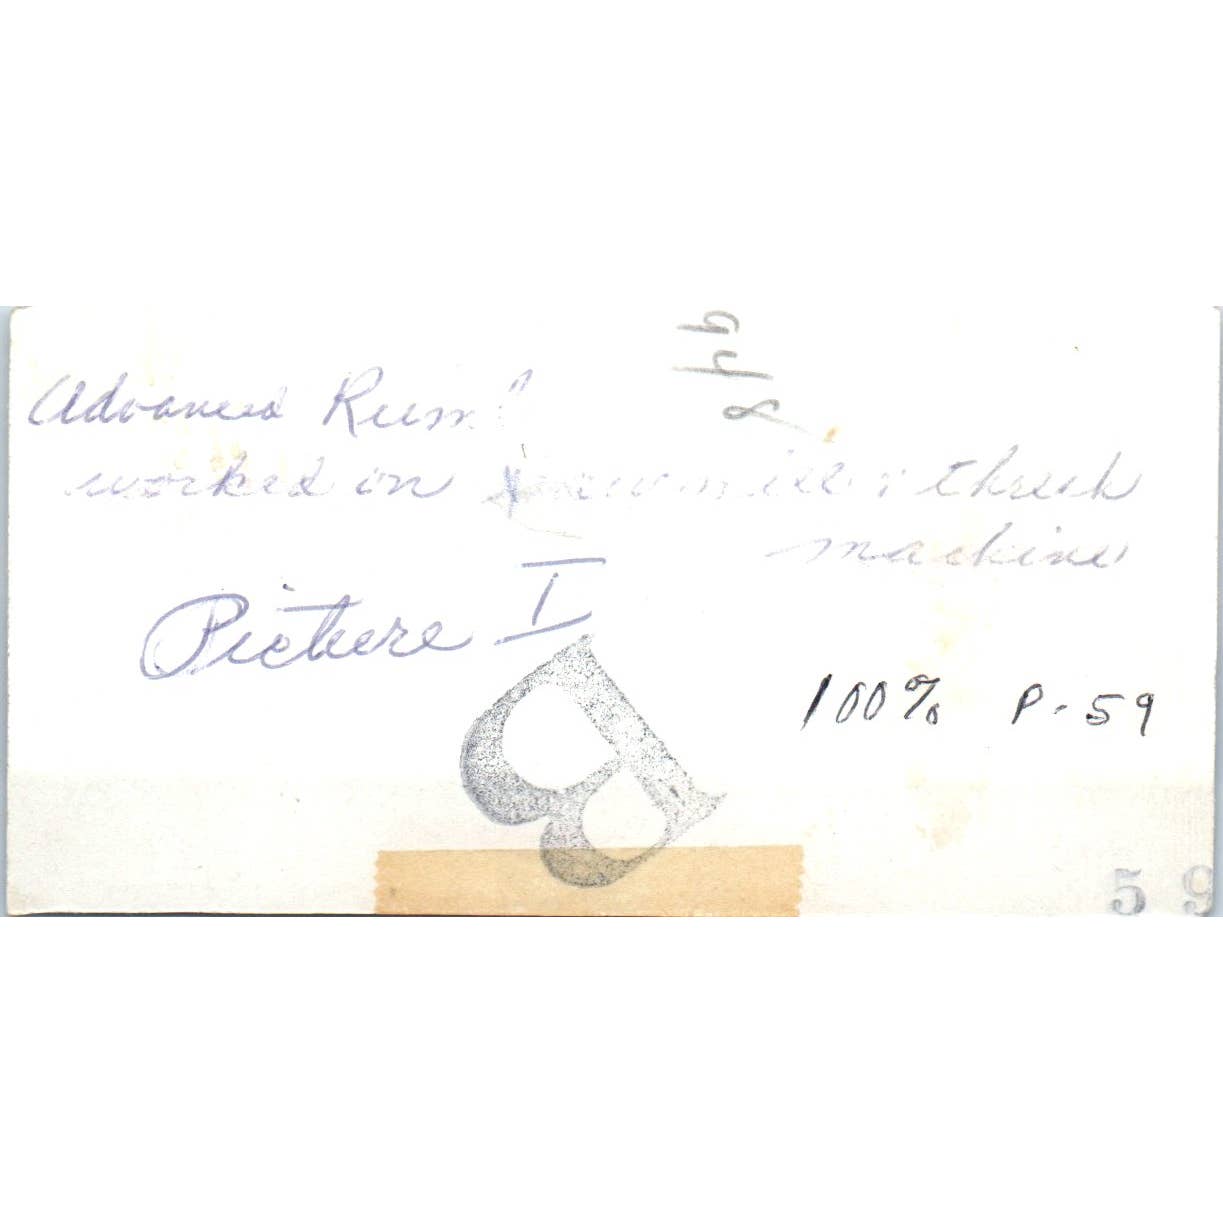 Advanced Rum
worked on sawmill & thresh
machine
Picture I
100% P-59
B
59